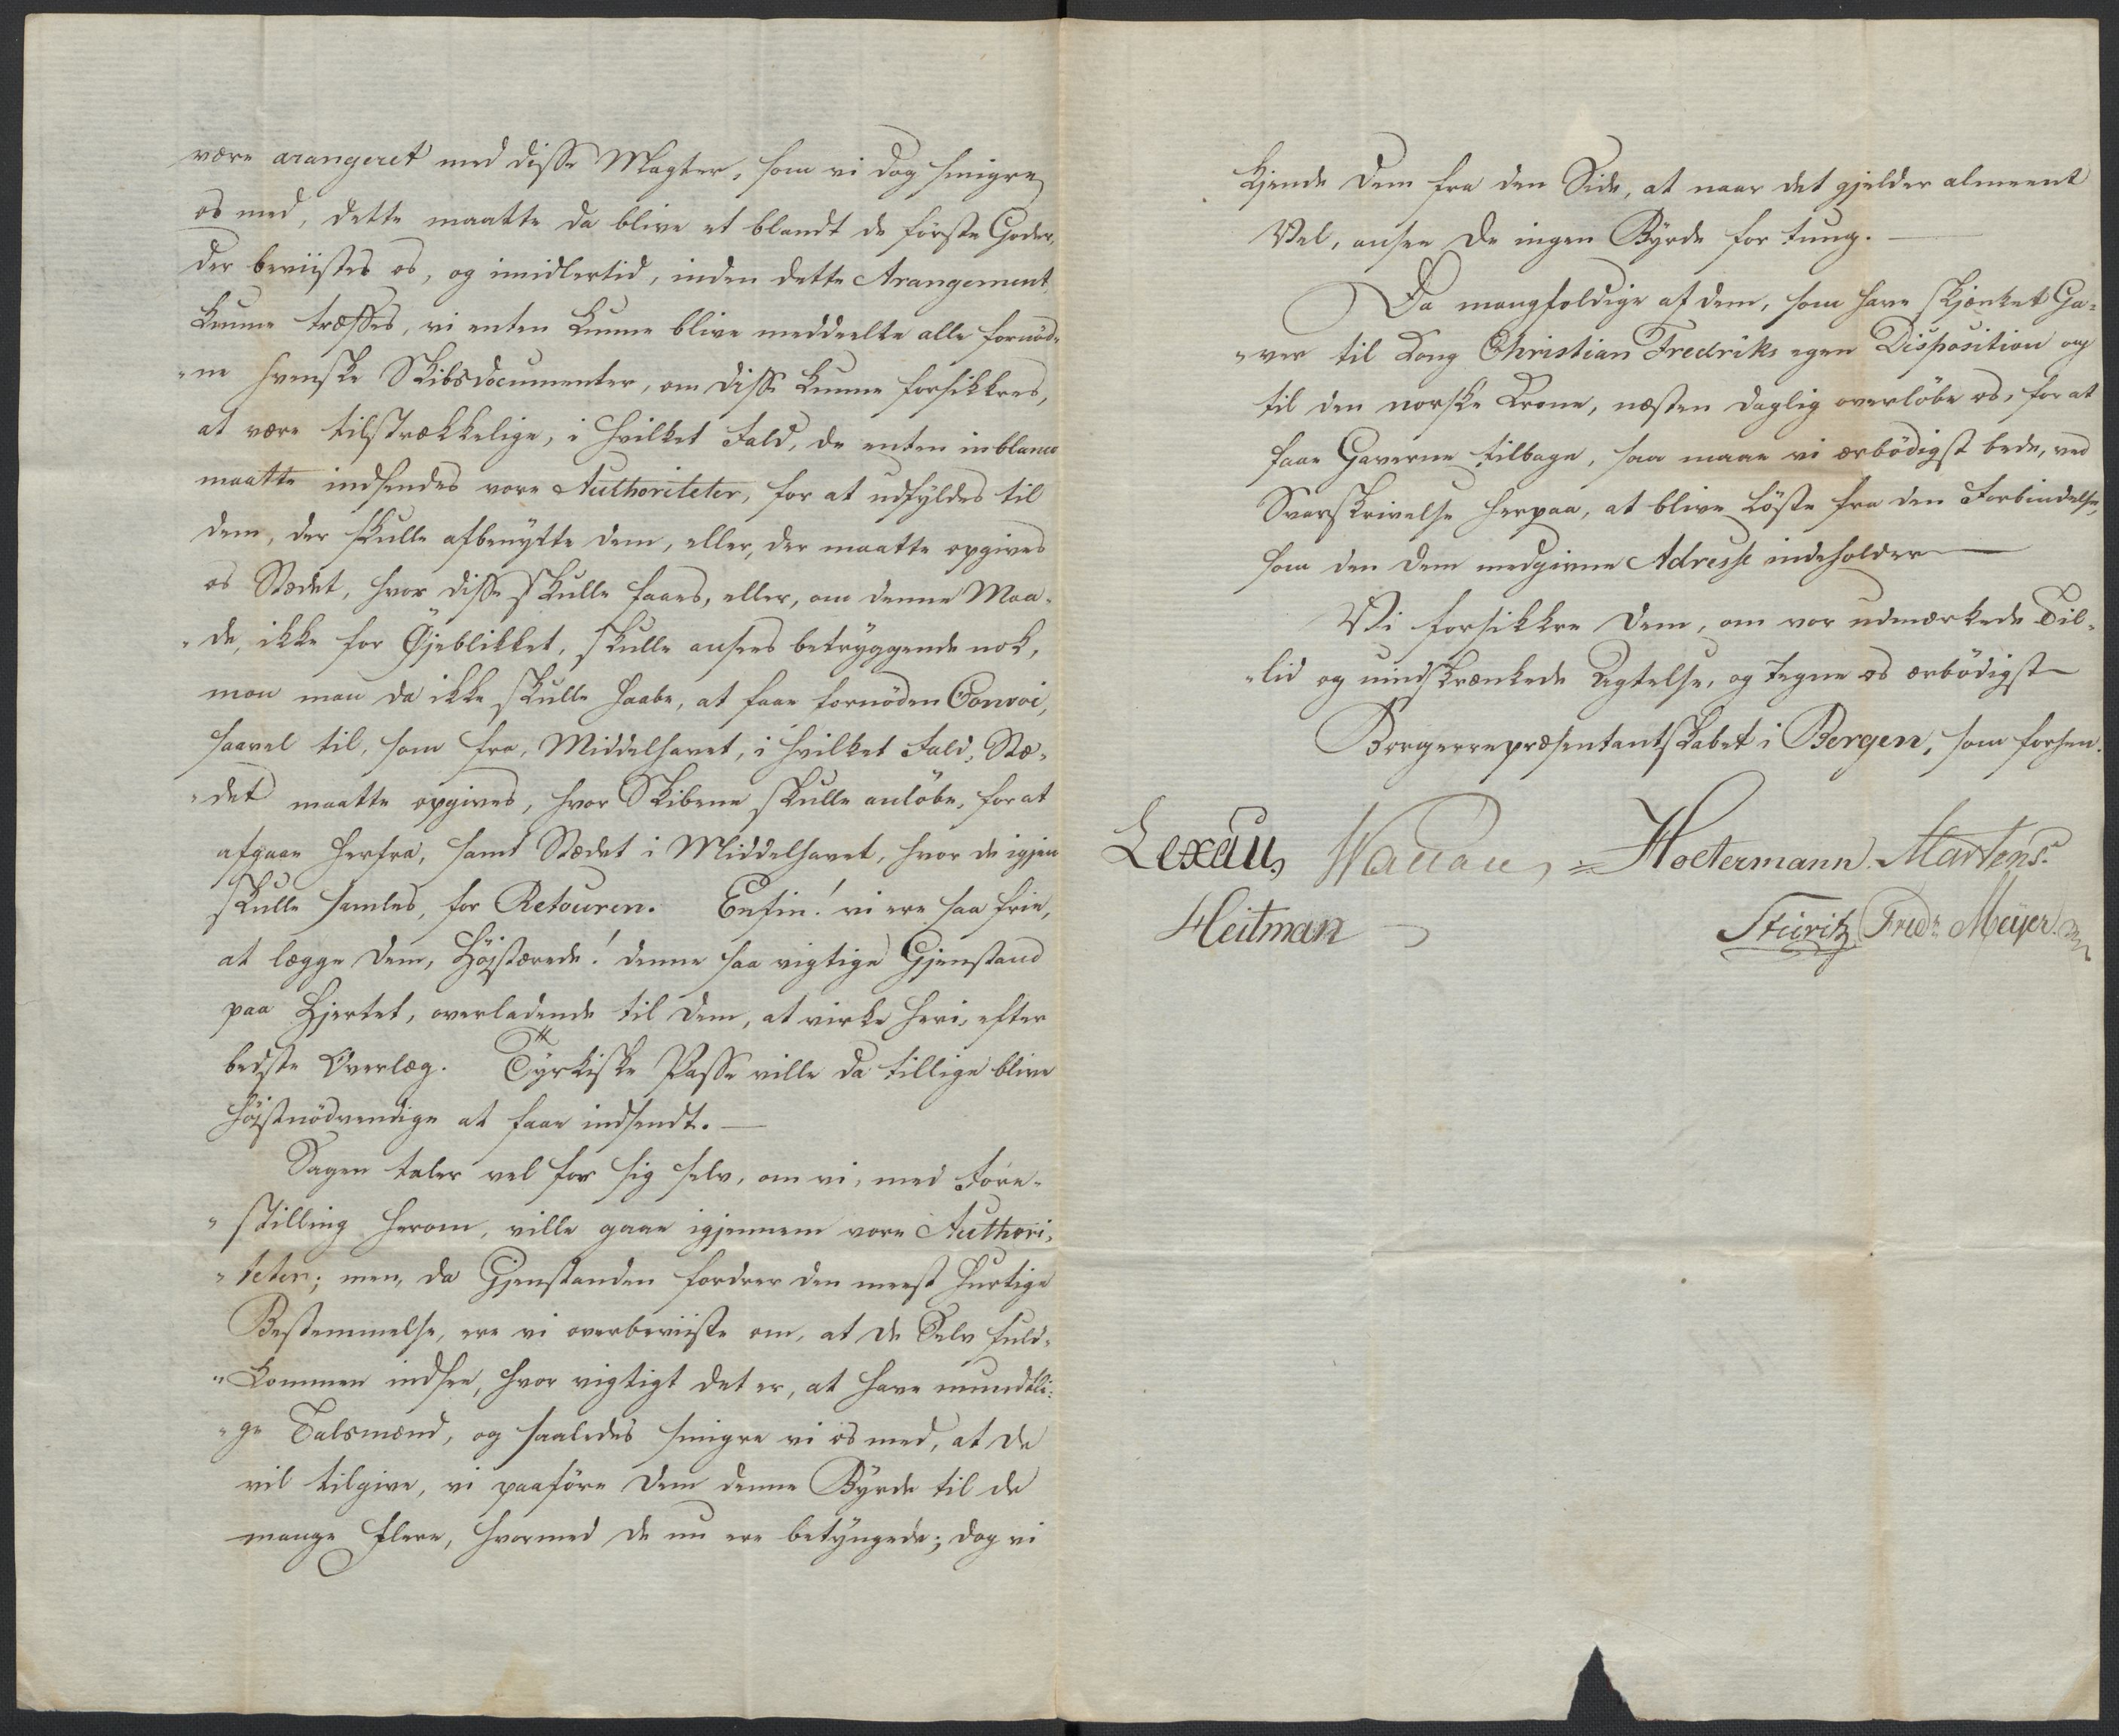 være arangeret med disse Magter, som vi dog smigre
os med, dette maatte da blive et blandt de første Goder,
der beviistes os, og imidlertid, inden dette Arangement,
kunne træffes, vi enten kunne blive meddeelte alle fornød-
"ne svenske Skibsdocumenter, om disse kunne forsikkres,
at være tilstrækkelige, i hvilket Fald, de enten in blanco
maatte indsendes vore Authoriteter, for at udfyldes til
dem, der skulle afbenytte dem, eller, der maatte opgives
os Stædet, hvor disse skulle faaes, eller, om denne Maa-
"de, ikke for Øjeblikket, skulle ansees betryggende nok,
mon man da ikke skulle haabe, at faae fornøden Convoi,
saavel til, som fra, Middelhavet, i hvilket Fald, Stæ-
"det maatte opgives, hvor Skibene skulle anløbe, for at
afgaae herfra, samt Stædet i Middelhavet, hvor de igjen
skulle samles, for Retouren. Enfin! vi ere saa frie,
at lægge Dem, Højstærede! denne saa vigtige Gjenstand
paa Hjertet, overladende til Dem, at virke heri, efter
bedste Overlæg. Tyrkiske Passe ville da tillige blive
højstnødvendige at faae indsendt. —
Sagen taler vel for sig selv, om vi, med Fore-
"stilling herom, ville gaae igjennem vore Authori-
"teter; men, da Gjenstanden fordrer den meest hurtige
Bestemmelse, ere vi overbeviiste om, at De Selv fuld-
"kommen indsee, hvor vigtigt det er, at have mundtli-
"ge Talsmænd, og saaledes smigre vi os med, at De
vil tilgive, vi paaføre Dem denne Byrde til de
mange flere, hvormed De nu ere betyngede; dog vi
kjende Dem fra den Side, at naar det gjelder almeent
Vel, ansee De ingen Byrde for tung. —
Da mangfoldige af dem, som have skjænket Ga-
"ver til Kong Christian Fredriks egen Disposition og
til den norske Krone, næsten daglig overløbe os, for at
faae Gaverne tilbage, saa maae vi ærbødigst bede, ved
Svarskrivelse herpaa, at blive løste fra den Forbindelse,
som den Dem medgivne Adresse indeholder —
Vi forsikkre Dem, om vor udmærkede Til-
"lid og uindskrænkede Agtelse, og tegne os ærbødigst
Borgerrepræsentantskabet i Bergen, som forhen.
Lexau, Hoetermann. Martens.
Heitman Sturitz Fredr. Meyer.